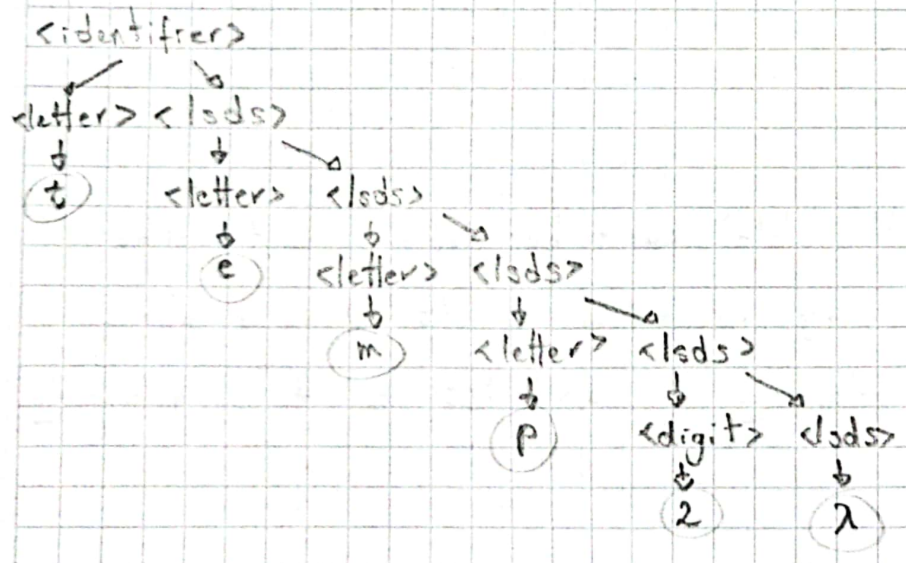 <identifier>
<letter> <lsds>
t <letter> <lsds>
e <letter> <lsds>
m <letter> <lsds>
p <digit> <lsds>
2 λ